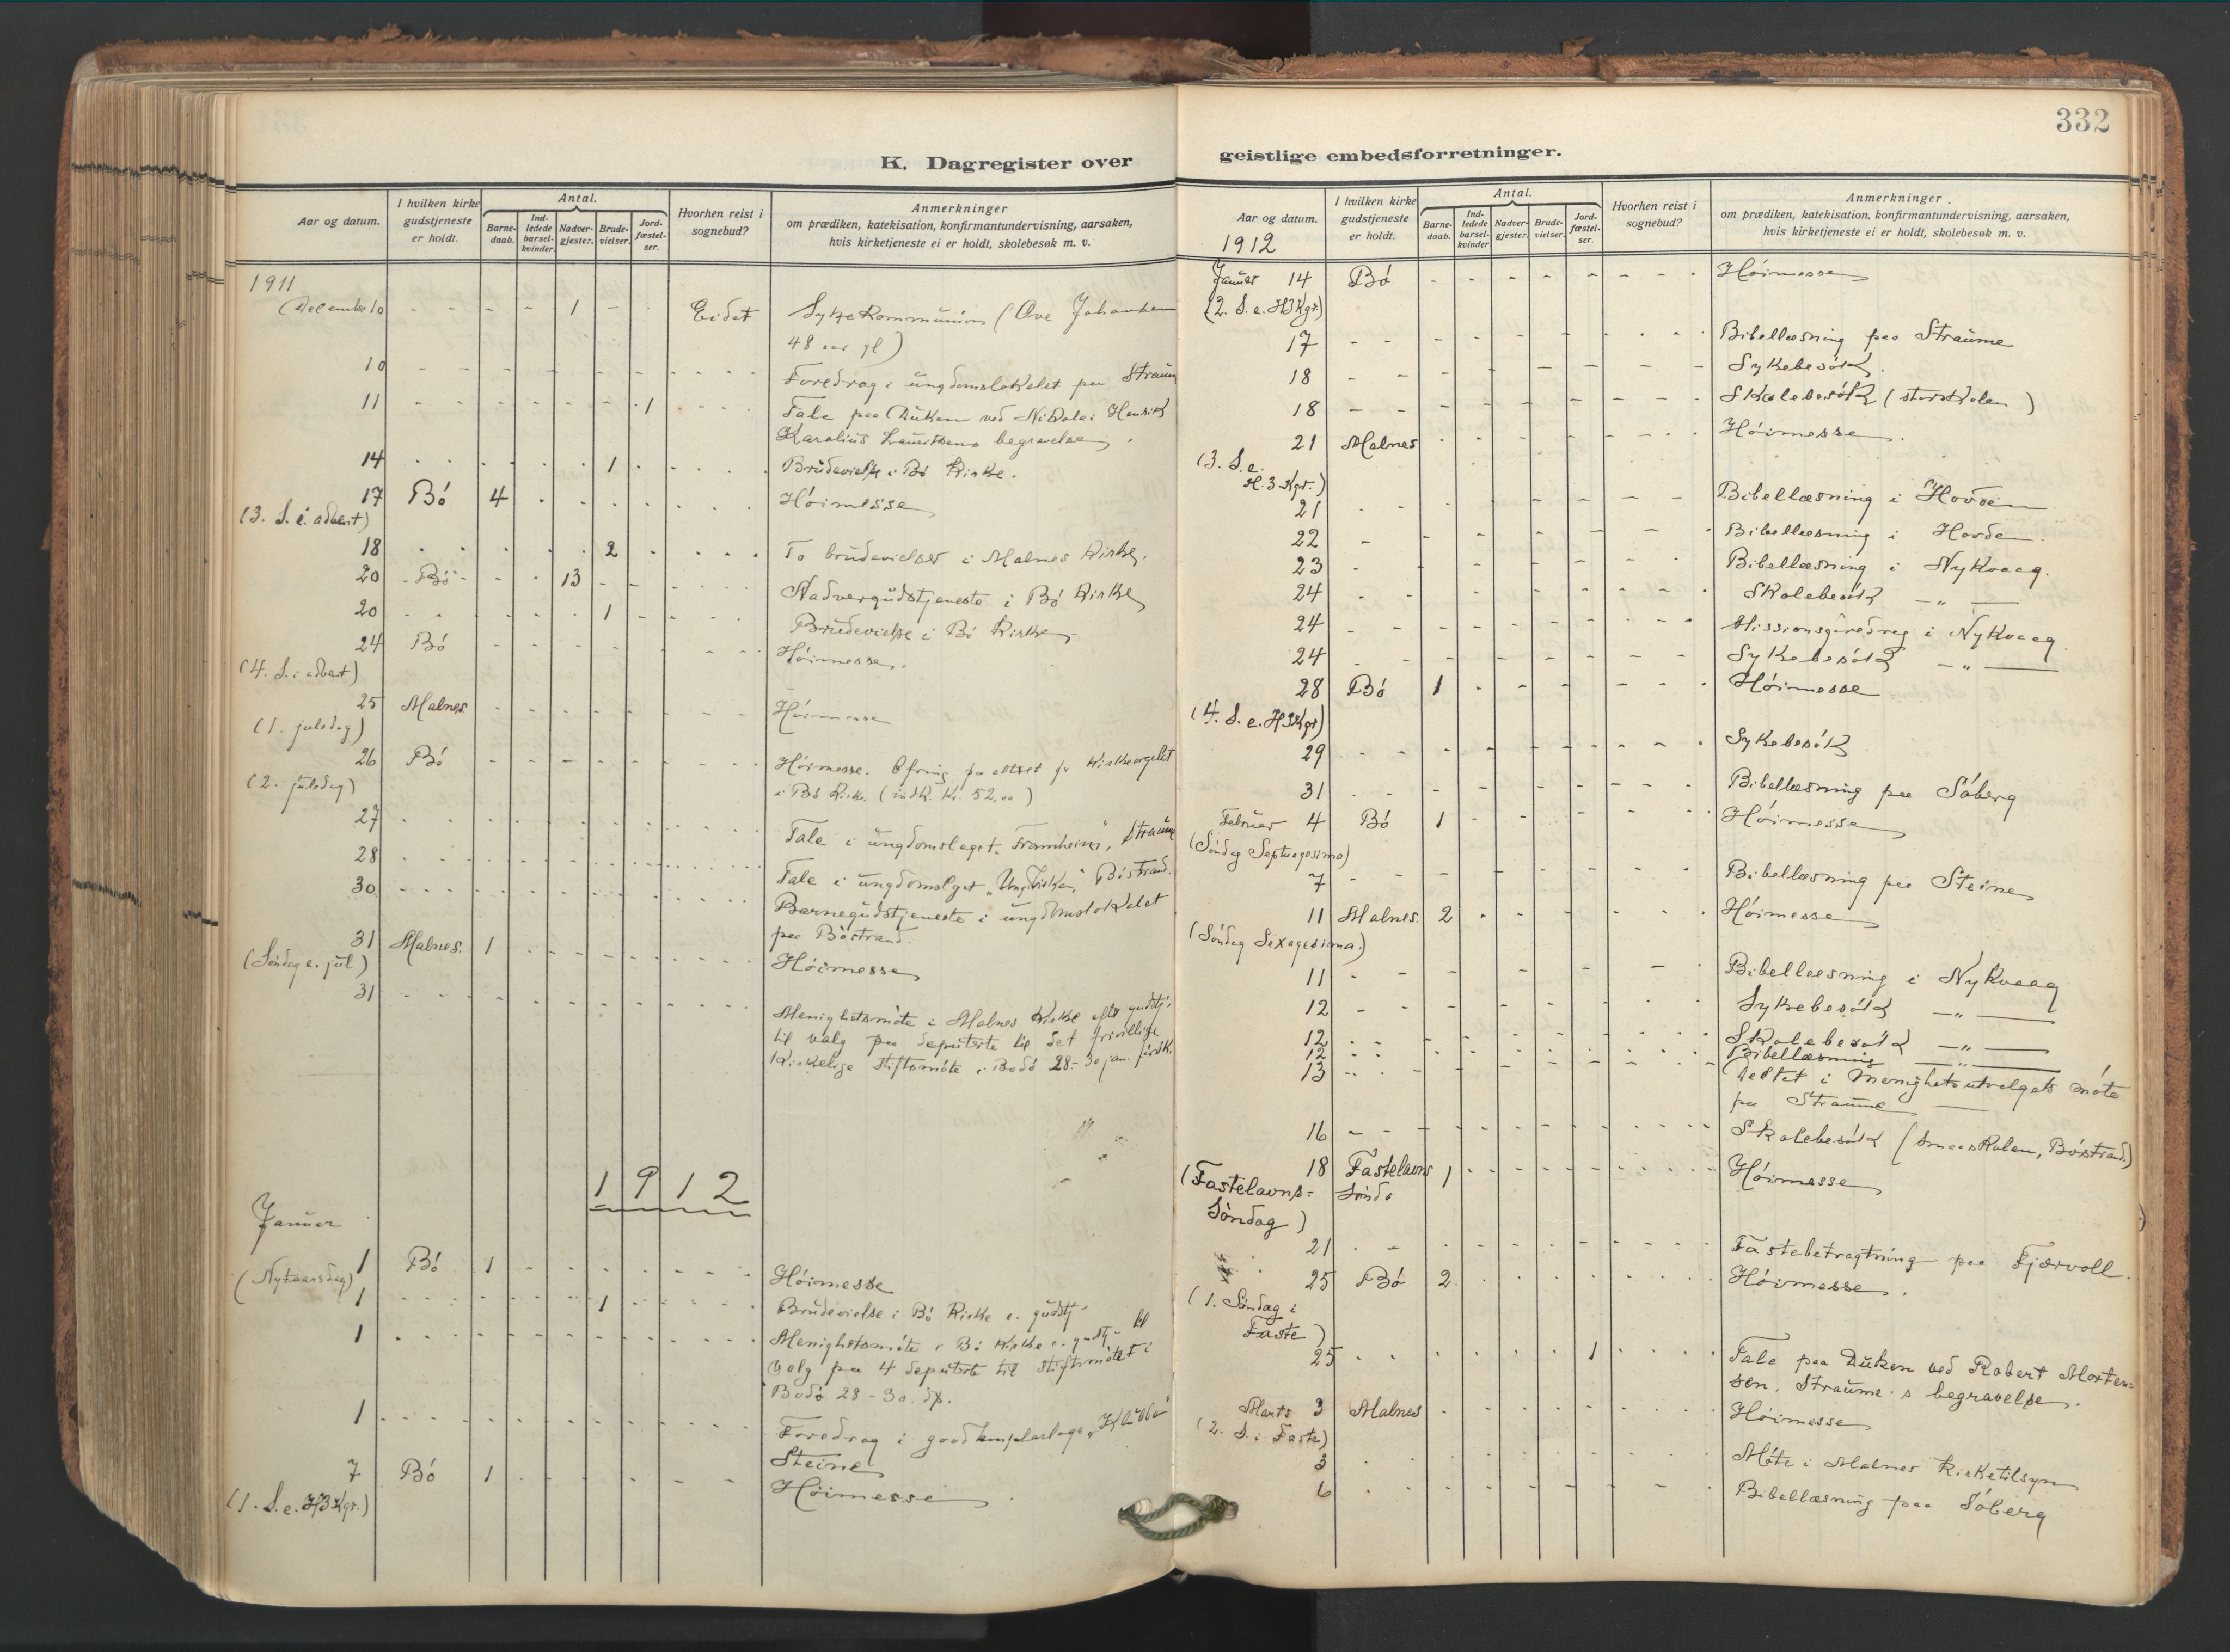 332
K. Dagregister over
geistlige embedsforretninger.
Aar og datum.
I hvilken kirke gudstjeneste er holdt.
Antal.
Barne-daab.
Ind-ledede barsel-kvinder.
Nadver-gjester.
Brude-vielser.
Jord-fæstel-ser.
Hvorhen reist i sognebud?
Anmerkninger
om prædiken, katekisation, konfirmantundervisning, aarsaken,
hvis kirketjeneste ei er holdt, skolebesøk m. v.
1911
December 10 - - - - 1 - - Eidet Sykekommunion (Ove Johansen
48 aar gl)
10 Foredrag i ungdomslokalet paa Straum
11 1 Tale paa Duken ved Nikolai Henrik
Karolius Lauritsens begravelse.
14 1 Brudevielse i Bø Kirke.
17 Bø 4 Høimesse
(3. S. i advent)
18 2 To brudevielser i Malnes Kirke.
20 Bø 13 Nadvergudstjeneste i Bø Kirke
20 1 Brudevielse i Bø Kirke
24 Bø Høimesse.
(4. S. i advent)
25 Malnes Høimesse
(1. juledag)
26 Bø Høimesse. Ofring paa altret for Kirkeorgelet
(2. juledag) i Bø Kirke. (indk. Kr. 52,00)
27 Tale i ungdomslaget "Framheim", Straume
28 Tale i ungdomslaget Bøstrand.
30 Barnegudstjeneste i ungdomslokalet
paa Bøstrand.
31 Malnes. 1 Høimesse
(Søndag e. jul)
31 Menighetsmøte i Malnes Kirke efter gudstj.
til valg paa deputerte til det frivillige
Kirkelige Stiftsmøte i Bodø 28-30 jan.
1912
Januar
1 Bø 1 Høimesse
(Nytaarsdag)
1 1 Brudevielse i Bø Kirke e. gudstj.
1 Menighetsmøte i Bø Kirke e. gudstj. til
valg paa 4 deputerte til stiftsmøtet i
Bodø 28-30. ds.
1 Foredrag i goodtemplarloge "Klubben"
Steine
7 Bø 1 Høimesse
(1. S. e. H3Kgr.)
Aar og datum.
I hvilken kirke gudstjeneste er holdt.
Antal.
Barne-daab.
Ind-ledede barsel-kvinder
Nadver-gjester.
Brude-vielser.
Jord-fæstel-ser.
Hvorhen reist i sognebud?
Anmerkninger.
om prædiken, katekisation, konfirmantundervisning, aarsaken,
hvis kirketjeneste ei er holdt, skolebesøk m. v.
1912
Januar 14 Bø Høimesse
(2. S. e. H3Kgr.)
17 Bibellæsning paa Straume
18 Sykebesøk.
18 Skolebesøk (storskolen)
21 Malnes Høimesse.
(3. S. e.
H. 3 Kgr.)
21 Bibellæsning i Hovden
22 Bibellæsning i Hovde
23 Bibellæsning i Nykvaag.
24 Skolebesøk - " -
24 Missionsforedrag i Nykvaag
24 Sykebesøk - " -
28 Bø 1 Høimesse
(4. S. e. H3Kgr)
29 Sykebesøk
31 Bibellæsning paa Søberg
Februar 4 Bø 1 Høimesse
(Søndag Septuagesima)
7 Bibellæsning paa Steine
11 Malnes. 2 Høimesse
(Søndag Sexagesima.)
11 Bibellæsning i Nykvaag
12 Sykebesøk - " -
12 Skolebesøk - " -
12 Bibellæsning - " -
13 Deltat i Menighetsutvalgets møte
paa Straume
16 Skolebesøk (Smaaskolen, Bøstrand)
18 Fastelavns 1 Høimesse
(Fastelavns= Sønda
Søndag)
21 Fastebetragtning paa Fjærvoll.
25 Bø 2 Høimesse.
(1. Søndag i
Faste)
25 1 Tale paa Duken ved Robert Morten=
sen, Straume's begravelse.
Marts 3 Malnes Høimesse
(2. S. i Faste)
3 Møte i Malnes Kirketilsyn
6 Bibellæsning paa Søberg